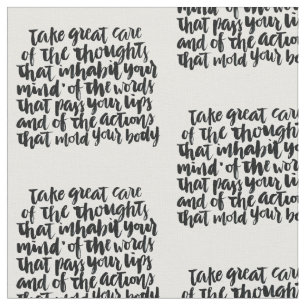 Take great care
of the thoughts
that inhabit your
mind · of the words
that pass your lips
and of the actions
that mold your body
Take great care
of the thoughts
that inhabit your
mind · of the words
that pass your lips
and of the actions
that inhabit your
mind · of the words
that pass your lips
and of the actions
that mold your body
Take great care
of the thoughts
that inhabit your
mind · of the words
that pass your lips
and of the actions
that mold your body
Take great care
of the thoughts